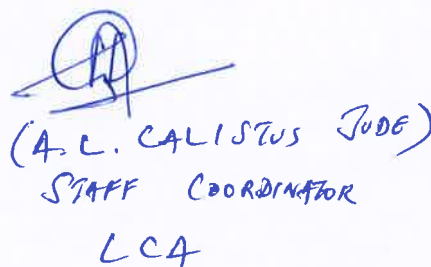 (A.L. CALISTUS JUDE)
STAFF COORDINATOR
LCA